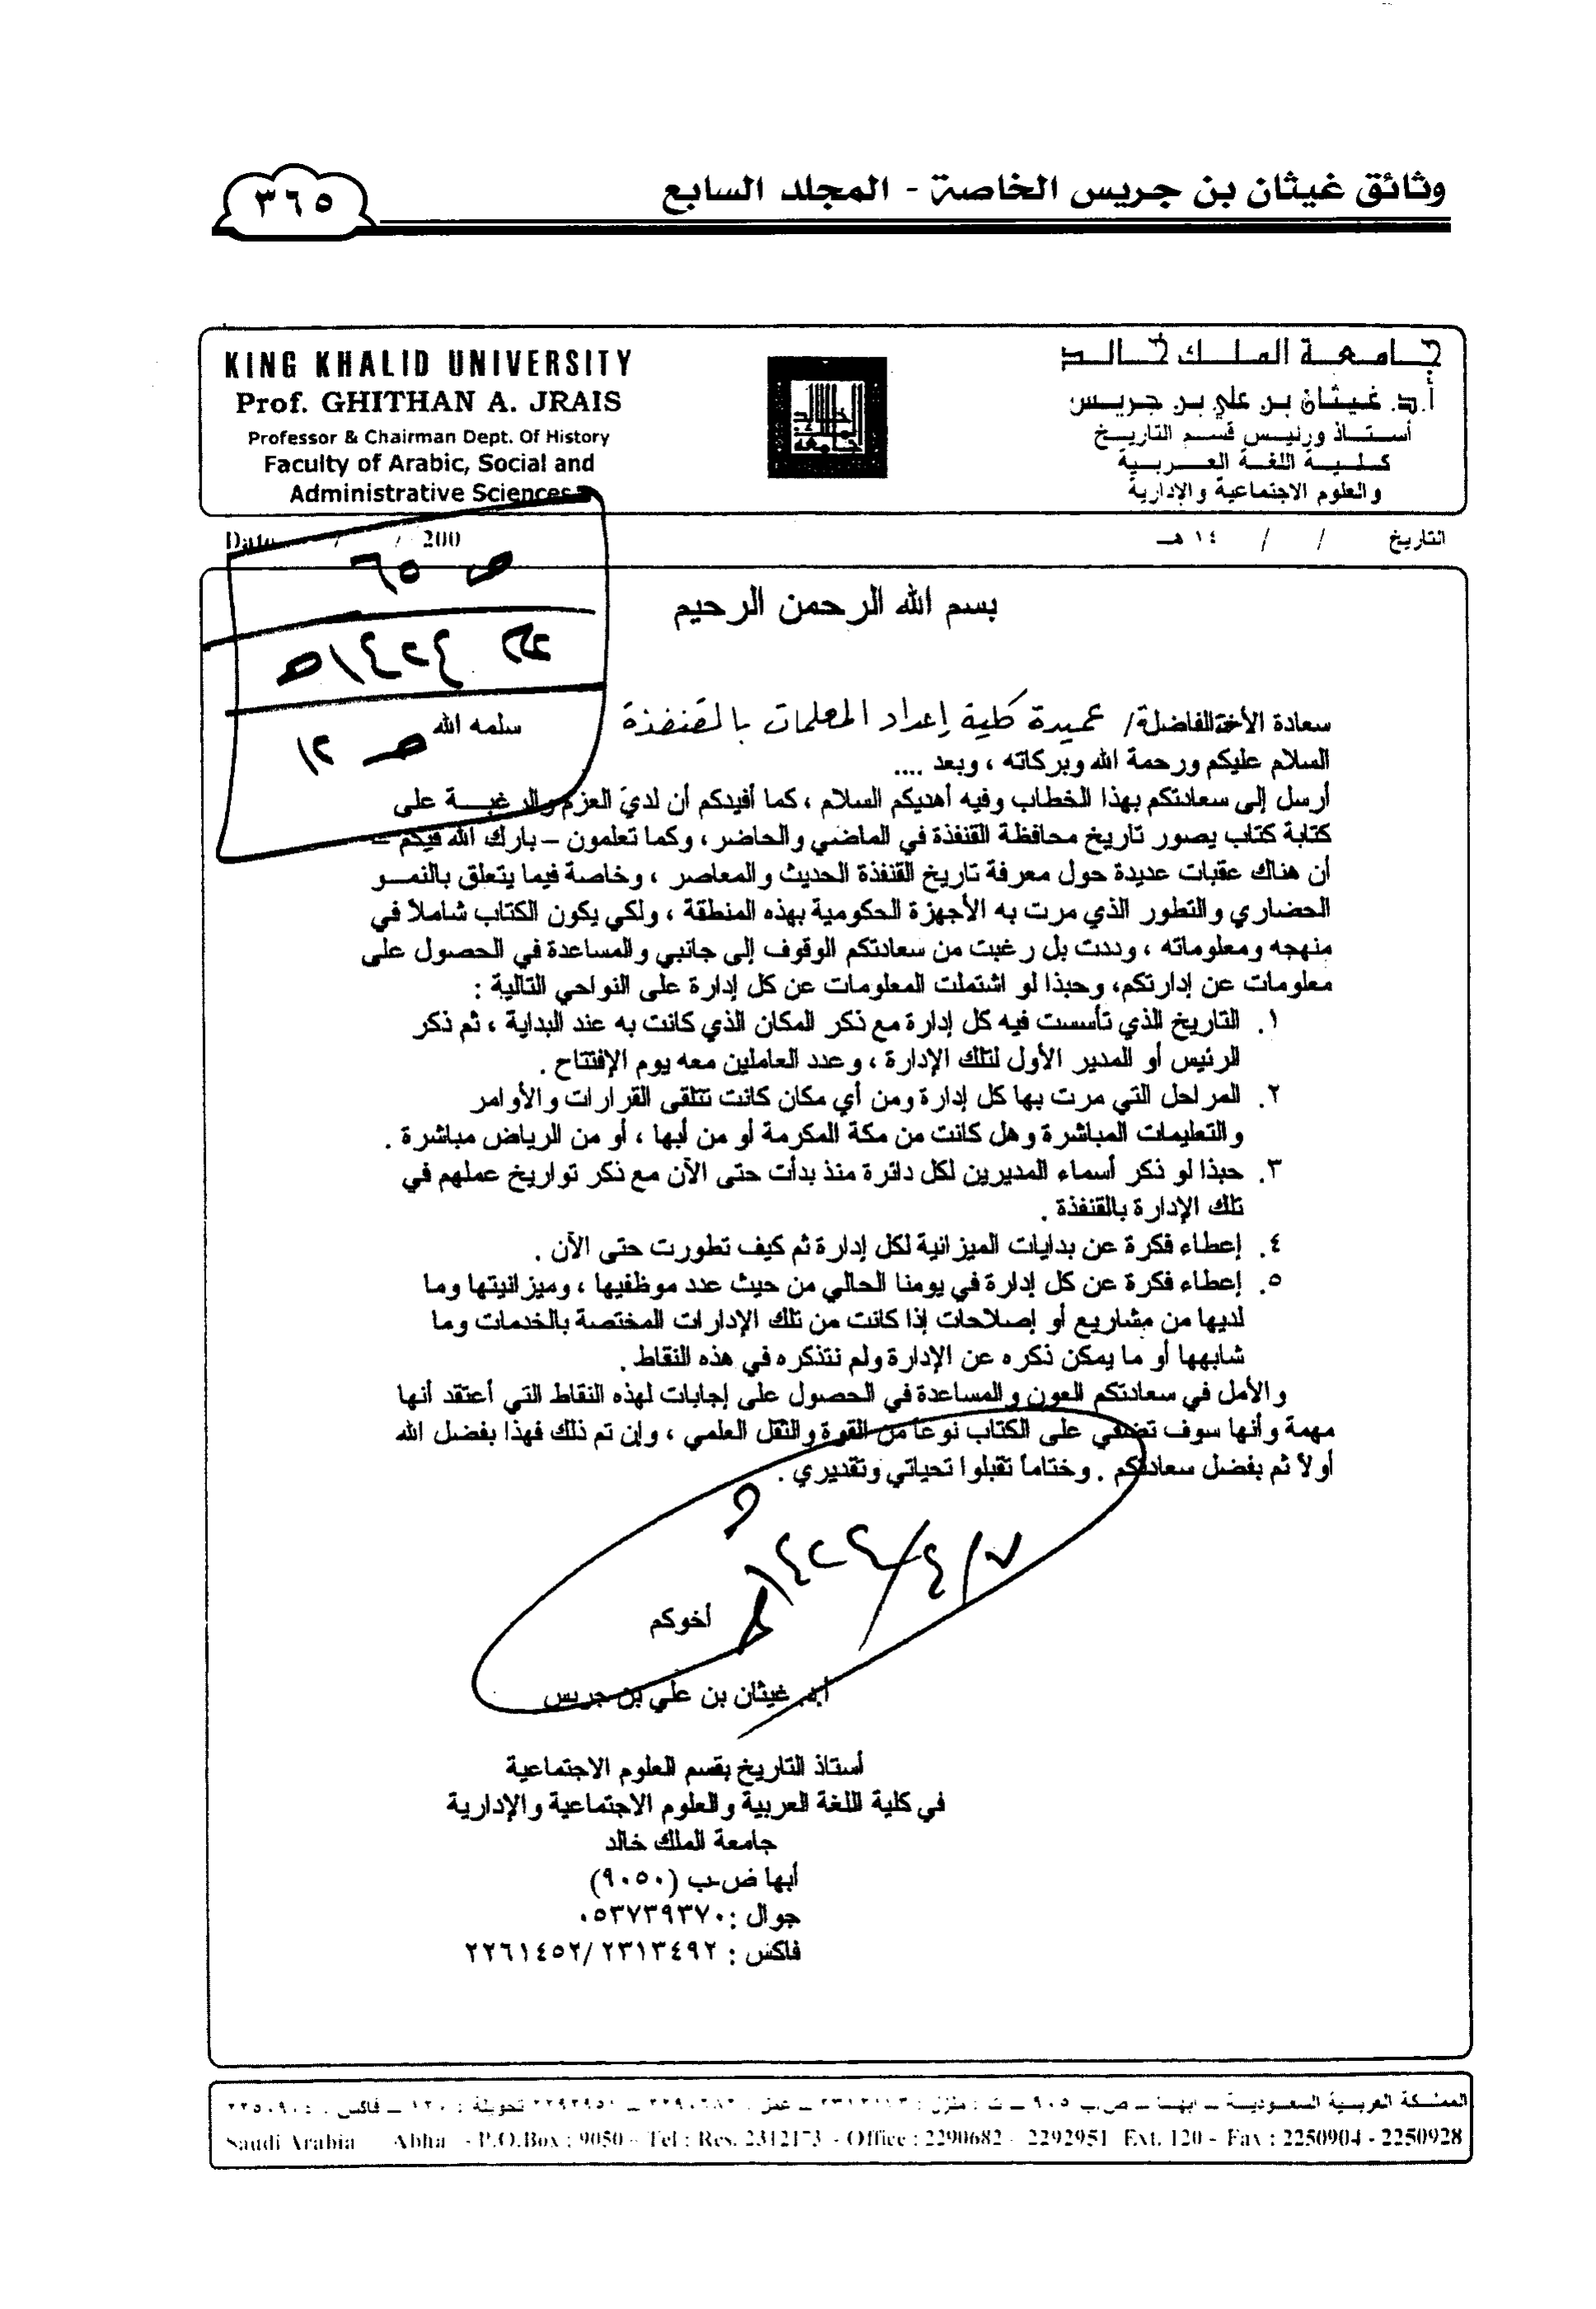 وثائق غيثان بن جريس الخاصة - المجلد السابع
٣٦٥
جامعة الملك خالد
أ.د. غيثان بن علي بن جريس
أستاذ ورئيس قسم التاريخ
كلية اللغة العربية
والعلوم الاجتماعية والإدارية
KING KHALID UNIVERSITY
Prof. GHITHAN A. JRAIS
Professor & Chairman Dept. Of History
Faculty of Arabic, Social and
Administrative Sciences
التاريخ / / ١٤ هـ
Date / / 200
ص ٦٥
ص ١٢
بسم الله الرحمن الرحيم
سعادة الأخت الفاضلة/ عميدة كلية إعداد المعلمات بالقنفذة سلمه الله
السلام عليكم ورحمة الله وبركاته ، وبعد ....
أرسل إلى سعادتكم بهذا الخطاب وفيه أهديكم السلام ، كما أفيدكم أن لديّ العزم والرغبة على
كتابة كتاب يصور تاريخ محافظة القنفذة في الماضي والحاضر ، وكما تعلمون – بارك الله فيكم –
أن هناك عقبات عديدة حول معرفة تاريخ القنفذة الحديث والمعاصر ، وخاصة فيما يتعلق بالنمو
الحضاري والتطور الذي مرت به الأجهزة الحكومية بهذه المنطقة ، ولكي يكون الكتاب شاملاً في
منهجه ومعلوماته ، وددت بل رغبت من سعادتكم الوقوف إلى جانبي والمساعدة في الحصول على
معلومات عن إدارتكم، وحبذا لو اشتملت المعلومات عن كل إدارة على النواحي التالية :
١. التاريخ الذي تأسست فيه كل إدارة مع ذكر المكان الذي كانت به عند البداية ، ثم ذكر
الرئيس أو المدير الأول لتلك الإدارة ، وعدد العاملين معه يوم الإفتتاح .
٢. المراحل التي مرت بها كل إدارة ومن أي مكان كانت تتلقى القرارات والأوامر
والتعليمات المباشرة وهل كانت من مكة المكرمة أو من أبها ، أو من الرياض مباشرة .
٣. حبذا لو ذكر أسماء المديرين لكل دائرة منذ بدأت حتى الآن مع ذكر تواريخ عملهم في
تلك الإدارة بالقنفذة .
٤. إعطاء فكرة عن بدايات الميزانية لكل إدارة ثم كيف تطورت حتى الآن .
٥. إعطاء فكرة عن كل إدارة في يومنا الحالي من حيث عدد موظفيها ، وميزانيتها وما
لديها من مشاريع أو إصلاحات إذا كانت من تلك الإدارات المختصة بالخدمات وما
شابهها أو ما يمكن ذكره عن الإدارة ولم نتذكره في هذه النقاط .
والأمل في سعادتكم العون والمساعدة في الحصول على إجابات لهذه النقاط التي أعتقد أنها
مهمة وأنها سوف تضفي على الكتاب نوعاً من القوة والثقل العلمي ، وإن تم ذلك فهذا بفضل الله
أولاً ثم بفضل سعادتكم . وختاماً تقبلوا تحياتي وتقديري .
أخوكم
أ.د. غيثان بن علي بن جريس
أستاذ التاريخ بقسم العلوم الاجتماعية
في كلية اللغة العربية والعلوم الاجتماعية والإدارية
جامعة الملك خالد
أبها ص.ب (٩٠٥٠)
جوال : ٠٥٣٧٣٩٣٧٠
فاكس : ٢٢٦١٤٥٢/٢٣١٣٤٩٢
المملكة العربية السعودية – أبها – ص.ب ٩٠٥
Saudi Arabia Abha - P.O.Box : 9050 - Tel : Res. 2312173 - Office : 2290682 - 2292951 Ext. 120 - Fax : 2250904 - 2250928